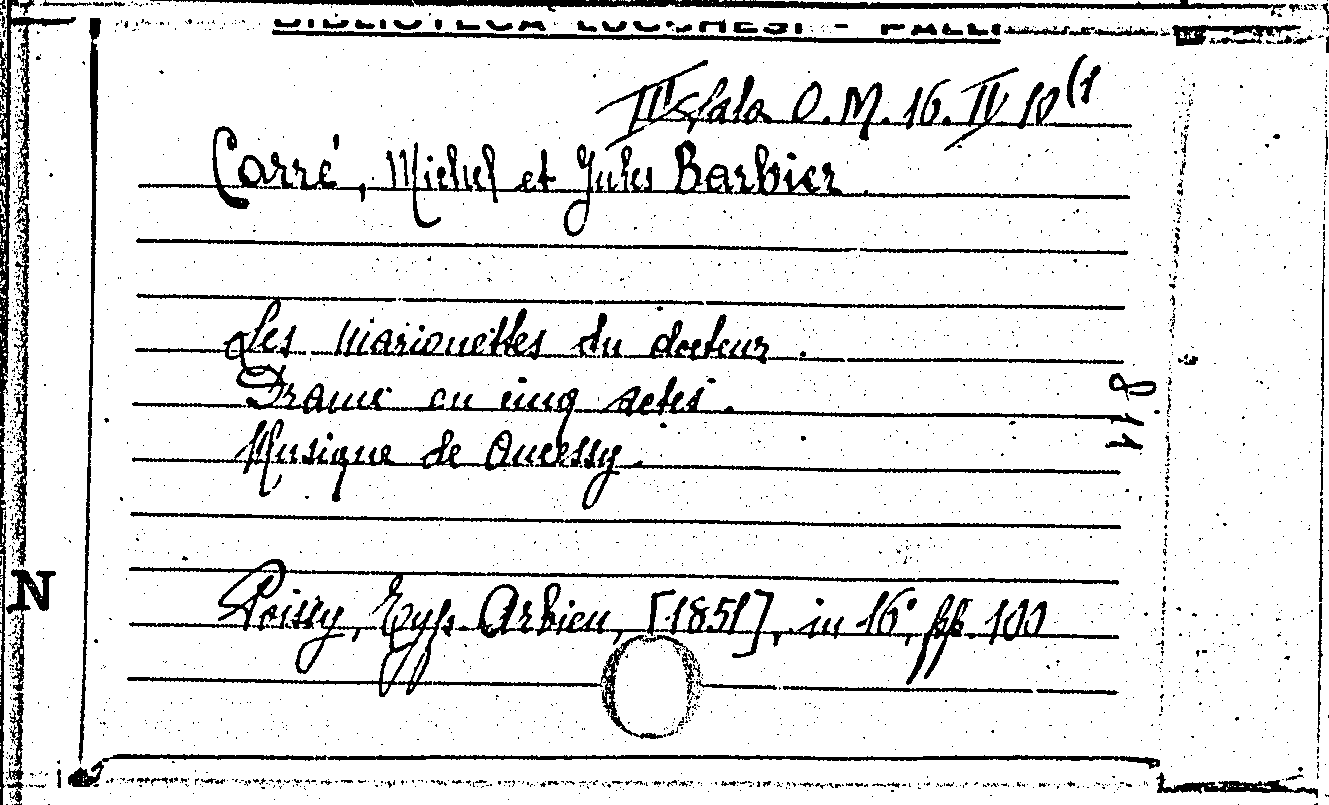 BIBLIOTECA LUCCHESI - PALLI
IIIª Sala O. M. 16. IV 10 (1
Carré, Michel et Jules Barbier
Les Marionettes du docteur.
Drame en cinq actes.
Musique de Ancessy.
Poissy, Typ. Arbieu, [1851], in 16°, pp. 100
118
N